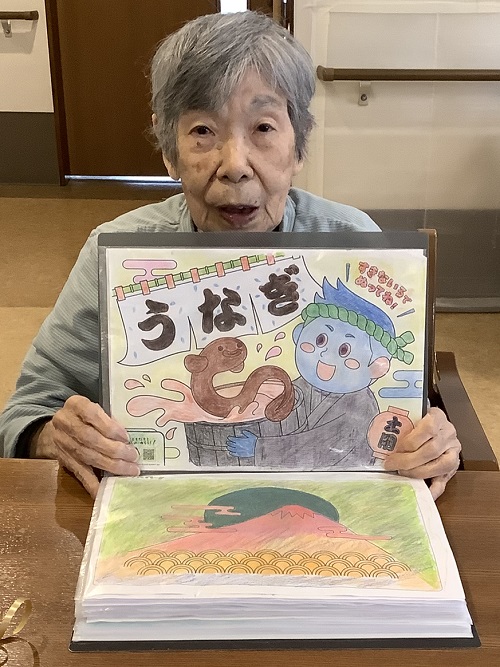 うなぎ
すきないろで
ぬってね!
土用